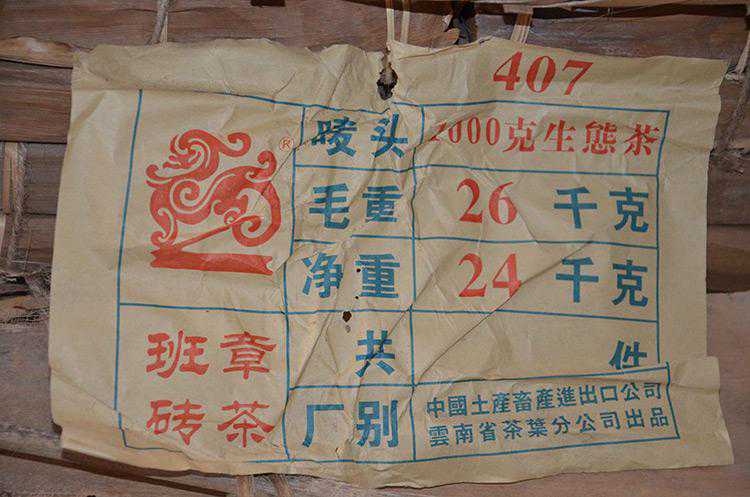 407
®
唛头 1000克生態茶
毛重 26 千克
净重 24 千克
班章
砖茶
共 件
厂别
中國土產畜產進出口公司
雲南省茶葉分公司出品